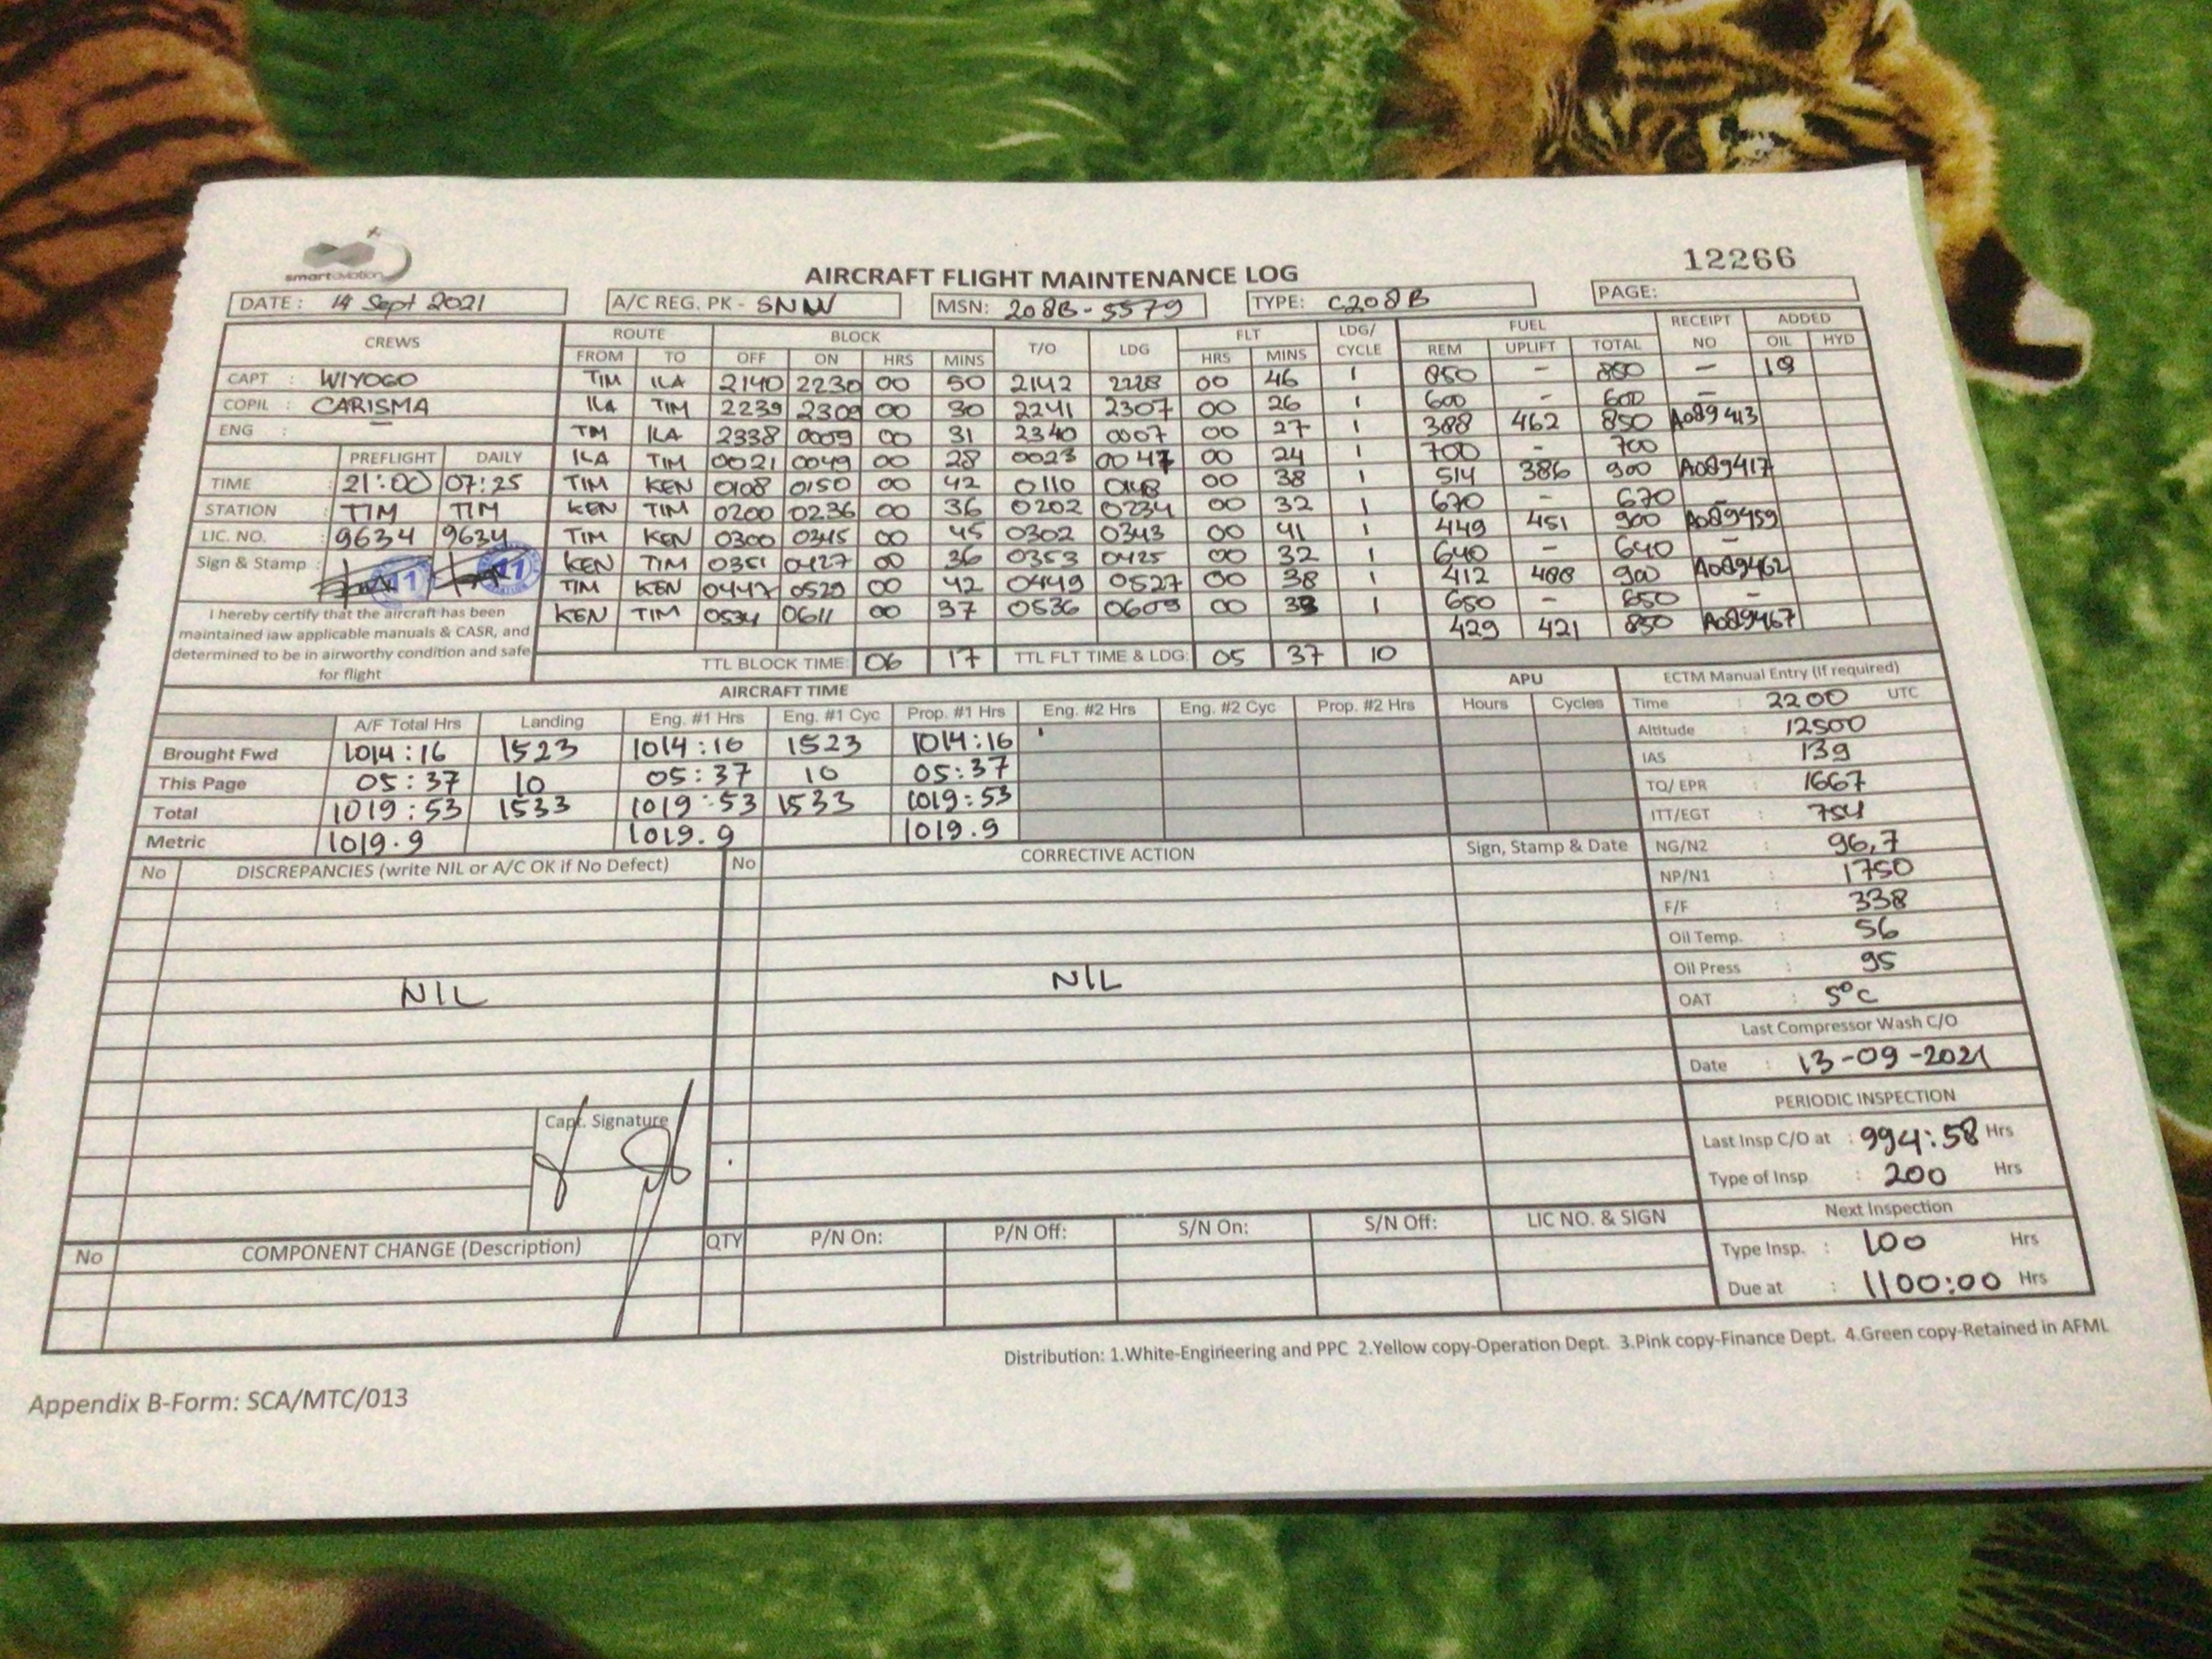 smart aviation
12266
AIRCRAFT FLIGHT MAINTENANCE LOG
DATE : 14 Sept 2021 A/C REG. PK - SNW MSN: 208B-5579 TYPE: C208B PAGE:
CREWS ROUTE BLOCK T/O LDG FLT LDG/ CYCLE FUEL RECEIPT NO ADDED
FROM TO OFF ON HRS MINS HRS MINS REM UPLIFT TOTAL OIL HYD
CAPT : WIYOGO TIM ILA 2140 2230 00 50 2142 2228 00 46 1 850 - 850 -
COPIL : CARISMA ILA TIM 2239 2309 00 30 2241 2307 00 26 1 600 - 600 -
ENG : TIM ILA 2338 0009 00 31 2340 0007 00 27 1 388 462 850 A089413
PREFLIGHT DAILY ILA TIM 0021 0049 00 28 0023 0047 00 24 1 700 - 700
TIME : 21:00 07:25 TIM KEN 0108 0150 00 42 0110 0148 00 38 1 514 386 900 A089417
STATION : TIM TIM KEN TIM 0200 0236 00 36 0202 0234 00 32 1 670 - 670 -
LIC. NO. : 9634 9634 TIM KEN 0300 0345 00 45 0302 0343 00 41 1 449 451 900 A089459
Sign & Stamp : KEN TIM 0351 0427 00 36 0353 0425 00 32 1 640 - 640 -
TIM KEN 0447 0529 00 42 0449 0527 00 38 1 412 488 900 A089462
KEN TIM 0534 0611 00 37 0536 0609 00 33 1 650 - 650 -
429 421 850 A089467
I hereby certify that the aircraft has been
maintained iaw applicable manuals & CASR, and
determined to be in airworthy condition and safe
for flight
TTL BLOCK TIME: 06 17 TTL FLT TIME & LDG: 05 37 10
AIRCRAFT TIME APU ECTM Manual Entry (if required)
A/F Total Hrs Landing Eng. #1 Hrs Eng. #1 Cyc Prop. #1 Hrs Eng. #2 Hrs Eng. #2 Cyc Prop. #2 Hrs Hours Cycles
Brought Fwd 1014:16 1523 1014:16 1523 1014:16
This Page 05:37 10 05:37 10 05:37
Total 1019:53 1533 1019:53 1533 1019:53
Metric 1019.9 1019.9 1019.9
Time : 2200 UTC
Altitude : 12500
IAS : 139
TQ/ EPR : 1667
ITT/EGT : 754
NG/N2 : 96,7
NP/N1 : 1750
F/F : 338
Oil Temp. : 56
Oil Press : 95
OAT : 5°C
Last Compressor Wash C/O
Date : 13-09-2021
PERIODIC INSPECTION
Last Insp C/O at : 994:58 Hrs
Type of Insp : 200 Hrs
Next Inspection
Type Insp. : 100 Hrs
Due at : 1100:00 Hrs
No DISCREPANCIES (write NIL or A/C OK if No Defect) No CORRECTIVE ACTION Sign, Stamp & Date
NIL NIL
Capt. Signature
No COMPONENT CHANGE (Description) QTY P/N On: P/N Off: S/N On: S/N Off: LIC NO. & SIGN
Distribution: 1.White-Engineering and PPC 2.Yellow copy-Operation Dept. 3.Pink copy-Finance Dept. 4.Green copy-Retained in AFML
Appendix B-Form: SCA/MTC/013